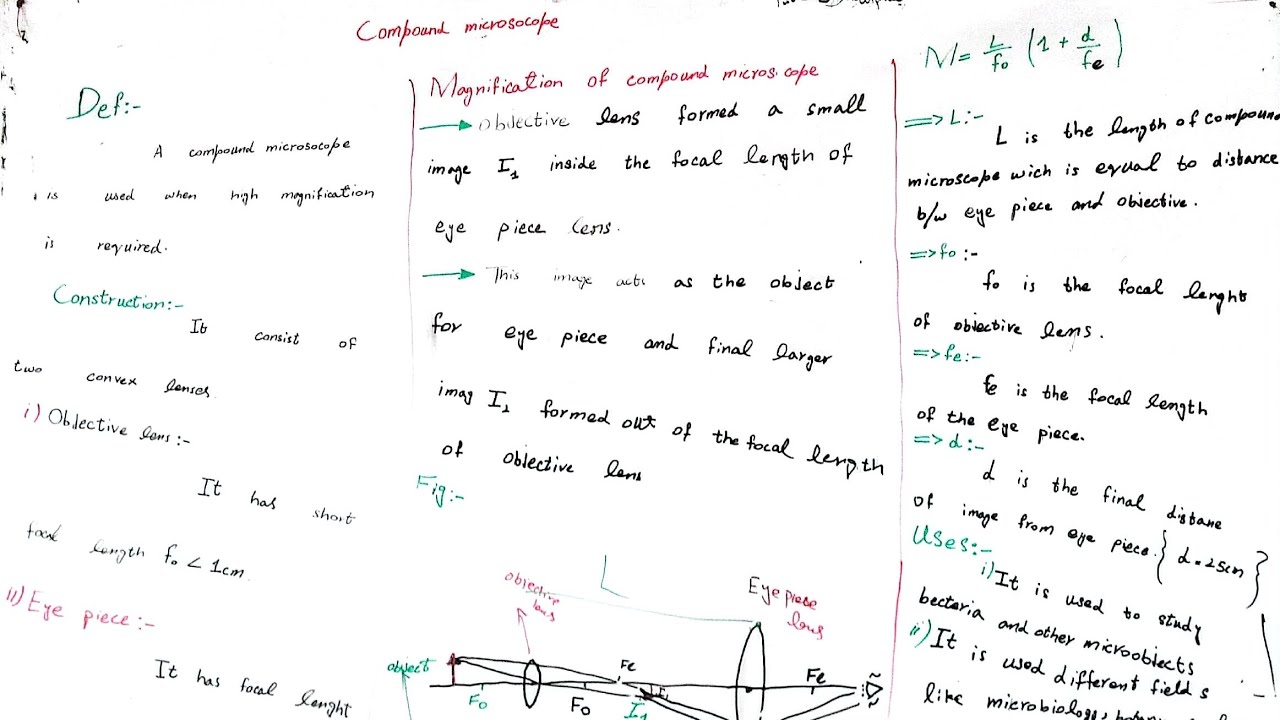 Compound microsocope
Def:-
A compound microsocope
is used when high magnification
is required.
Construction:-
It consist of
two convex lenses
i) Objective lens:-
It has short
focal length fo < 1cm.
ii) Eye piece:-
It has focal lenght
Magnification of compound micros.cope
Objective lens formed a small
image I1 inside the focal length of
eye piece lens.
This image acts as the object
for eye piece and final larger
imag I1 formed out of the focal length
of objective lens
Fig:-
L
objective
lens
Eye piece
lens
object
Fo
Fo
Fe
I1
Fe
M = L/fo (1 + d/fe)
=> L:-
L is the length of compound
microscope wich is equal to distance
b/w eye piece and objective.
=> fo:-
fo is the focal lenght
of objective lens.
=> fe:-
fe is the focal length
of the eye piece.
=> d:-
d is the final distane
of image from eye piece. {d = 25cm}
Uses:-
i) It is used to study
becteria and other microobjects
ii) It is used different field s
like microbiology,